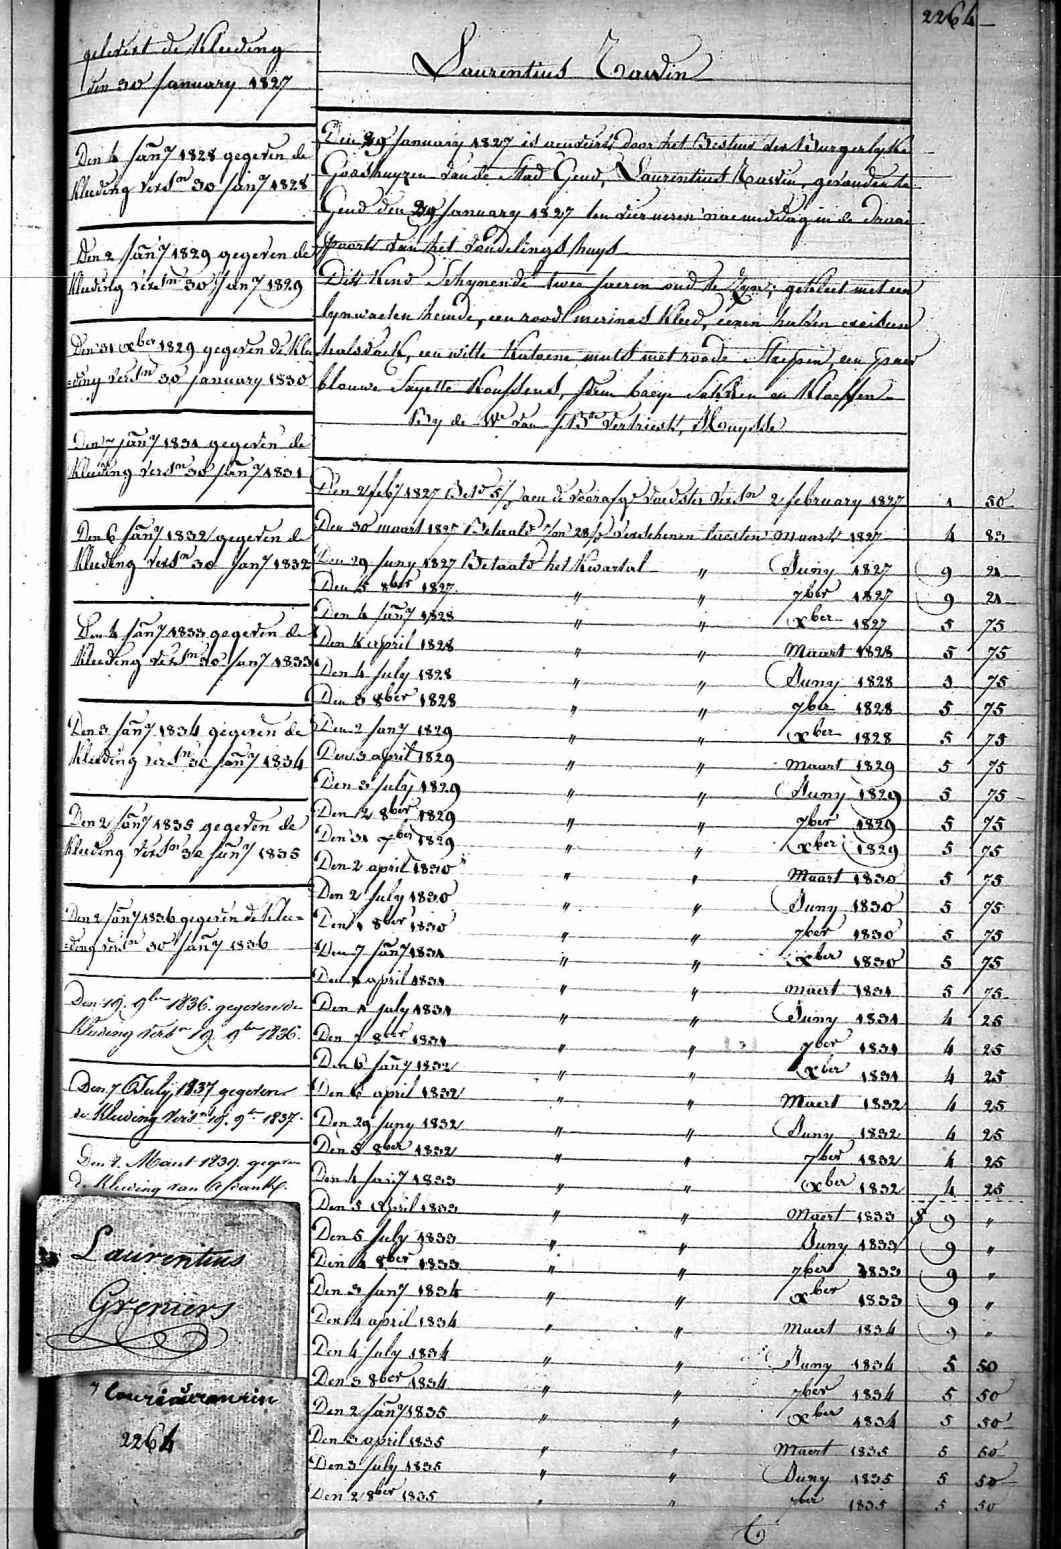 2264
gelevert de Kleeding
den 30 January 1827
Den 4 Jany 1828 gegeven de
Kleeding versn 30 Jany 1828
Den 2 Jany 1829 gegeven de
Kleeding versn 30 Jany 1829
Den 31 xber 1829 gegeven de Klee
=ding versn 30 January 1830
Den 7 Jany 1831 gegeven de
Kleeding versn 30 Jany 1831
Den 6 Jany 1832 gegeven de
Kleeding versn 30 Jany 1832
Den 4 Jany 1833 gegeven de
Kleeding versn 30 Jany 1833
Den 3 Jany 1834 gegeven de
Kleeding versn 30 Jany 1834
Den 2 Jany 1835 gegeven de
Kleeding versn 30 Jany 1835
Den 2 Jany 1836 gegeven de Klee=
=ding versn 30 Jany 1836
Den 19 9ber 1836 gegeven de
Kleeding versn 19 9ber 1836.
Den 7 July 1837 gegeven
de Kleeding versn 19 9ber 1837.
Den 8. Maart 1839. gegeven
de Kleeding van
Laurentius
Greniers
2264
Laurentius Rawin
Den 29 January 1827 is aenveird door het Bestuur der Burgerlyke
Godshuyzen van de Stad Gend, Laurentius Rawin, gevonden te
Gend den 29 January 1827 ten vier uren naermiddag in de draae
van het vondelings huys
Dit Kind Schynende twee jaeren oud te zyn; gekleet met een
lynwaeten hemde, een rood merinos Kleed, eenen halven
halsdoek, een witte Katoene muts met roode Streepen, een paer
blauwe Sayette Koussens,
By de We van
Den 2 feby 1827 aen de voorafge voedster versn 2 february 1827 1 50
Den 30 maart 1827 Betaald verschenen maart 1827 4 83
Den 29 Juny 1827 Betaald het Kwartal " Juny 1827 9 21
Den 5 8ber 1827 " " 7ber 1827 9 21
Den 4 Jany 1828 " " xber 1827 5 75
Den 4 april 1828 " " Maart 1828 5 75
Den 4 July 1828 " " Juny 1828 5 75
Den 3 8ber 1828 " " 7ber 1828 5 75
Den 2 Jany 1829 " " xber 1828 5 75
Den 3 april 1829 " " Maart 1829 5 75
Den 3 July 1829 " " Juny 1829 5 75
Den 2 8ber 1829 " " 7ber 1829 5 75
Den 31 xber 1829 " " xber 1829 5 75
Den 2 april 1830 " " Maart 1830 5 75
Den 2 July 1830 " " Juny 1830 5 75
Den 1 8ber 1830 " " 7ber 1830 5 75
Den 7 Jany 1831 " " xber 1830 5 75
Den 1 april 1831 " " Maert 1831 5 75
Den 1 July 1831 " " Juny 1831 4 25
Den 7 8ber 1831 " " 7ber 1831 4 25
Den 6 Jany 1832 " " xber 1831 4 25
Den 6 april 1832 " " Maert 1832 4 25
Den 29 Juny 1832 " " Juny 1832 4 25
Den 5 8ber 1832 " " 7ber 1832 4 25
Den 4 Jany 1833 " " xber 1832 4 25
Den 5 April 1833 " " Maert 1833 9 "
Den 5 July 1833 " " Juny 1833 9 "
Den 4 8ber 1833 " " 7ber 1833 9 "
Den 3 Jany 1834 " " xber 1833 9 "
Den 4 april 1834 " " Maert 1834 9 "
Den 4 July 1834 " " Juny 1834 5 50
Den 3 8ber 1834 " " 7ber 1834 5 50
Den 2 Jany 1835 " " xber 1834 5 50
Den 3 april 1835 " " Maert 1835 5 50
Den 3 July 1835 " " Juny 1835 5 50
Den 2 8ber 1835 " " 7ber 1835 5 50